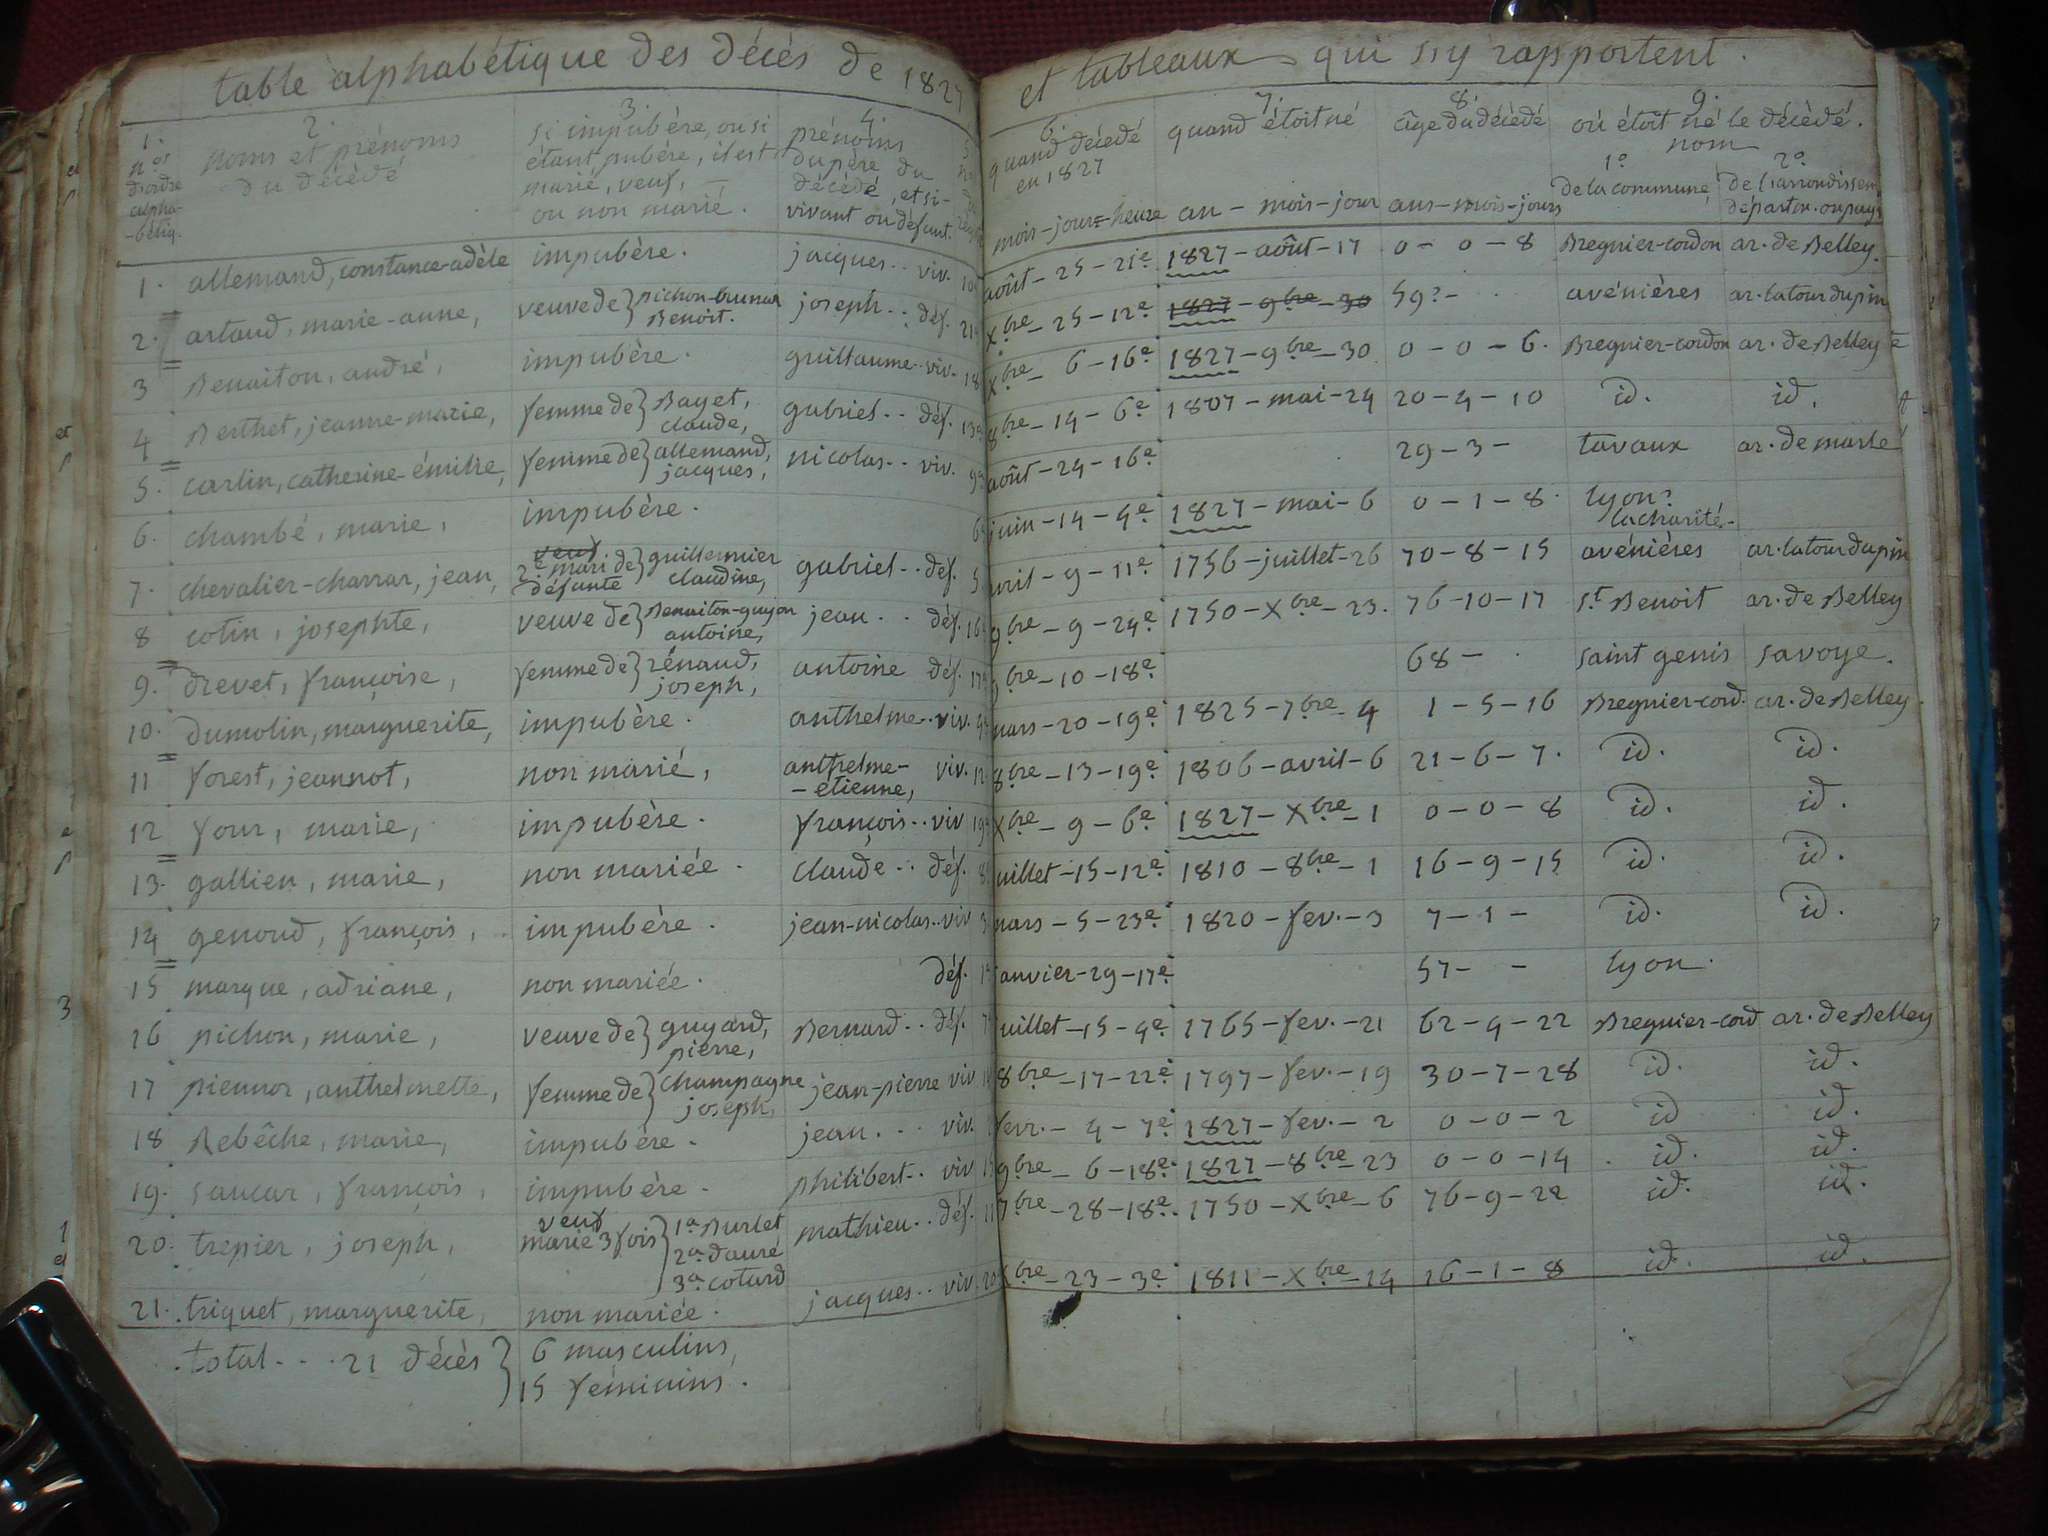 table alphabétique des décès de 1827 et tableaux qui s'y rapportent.
1. nos d'ordre alpha-bétiq.
2. noms et prénoms du décédé
3. si impubère, ou si étant pubère, il est marié, veuf, ou non marié.
4. prénoms du père du décédé, et si vivant ou défunt.
6. quand décédé en 1827 mois-jour-heure
7. quand étoit né an - mois - jour
8. âge du décédé ans - mois - jours
9. où étoit né le décédé. nom
1º de la commune, 2º de l'arrondissem. départm. ou pays
1. allemand, constance-adèle impubère. jacques.. viv. 10 août - 25 - 21e. 1827 - août - 17 0 - 0 - 8 Bregnier-cordon ar. de Belley.
2. artaud, marie-anne, veuve de } pichon-brunar Benoit. joseph.. déf. 21 Xbre - 25 - 12e. 1827 - 9bre - 30 59? - avénières ar. latourdupin
3 Benaiton, andré, impubère. guillaume.. viv. 18 Xbre - 6 - 16e. 1827 - 9bre - 30 0 - 0 - 6. Bregnier-cordon ar. de Belley
4 Berthet, jeanne-marie, femme de } Bayet, claude, gabriel.. déf. 13 8bre - 14 - 6e. 1807 - mai - 24 20 - 4 - 10 id. id.
5. carlin, catherine-émilie, femme de } allemand, jacques, nicolas.. viv. 9 août - 24 - 16e. 29 - 3 - tavaux ar. de marle
6. chambé, marie, impubère. 6 juin - 14 - 4e. 1827 - mai - 6 0 - 1 - 8. lyon? lacharité.
7. chevalier-charrar, jean, veuf. 2e mari de défunte } guillermier claudine, gabriel.. déf. 5 avril - 9 - 11e. 1756 - juillet - 26 70 - 8 - 15 avénières ar. latourdupin
8 cotin, josephte, veuve de } Benaiton-guyon antoine, jean.. déf. 16 9bre - 9 - 24e. 1750 - Xbre - 23. 76 - 10 - 17 st. Benoit ar. de Belley
9. drevet, françoise, femme de } rénaud, joseph, antoine déf. 17 9bre - 10 - 18e. 68 - saint genis savoye.
10. dumolin, marguerite, impubère. anthelme.. viv. 4 mars - 20 - 19e. 1825 - 7bre - 4 1 - 5 - 16 Bregnier-cord. ar. de Belley.
11 forest, jeannot, non marié, anthelme-etienne, viv. 12 8bre - 13 - 19e. 1806 - avril - 6 21 - 6 - 7. id. id.
12 four, marie, impubère. françois.. viv 19 Xbre - 9 - 6e. 1827 - Xbre - 1 0 - 0 - 8 id. id.
13. gallien, marie, non mariée. claude.. déf. 8 juillet - 15 - 12e. 1810 - 8bre - 1 16 - 9 - 15 id. id.
14 genoud, françois, impubère. jean-nicolas.. viv 3 mars - 5 - 23e. 1820 - fev. - 3 7 - 1 - id. id.
15 marque, adriane, non mariée. déf. 1 janvier - 29 - 17e. 57 - - lyon.
16 pichon, marie, veuve de } guyard, pierre, Bernard.. déf. 7 juillet - 15 - 4e. 1765 - fev. - 21 62 - 4 - 22 Bregnier-cord ar. de Belley
17 piennor, anthelmette, femme de } champagne joseph, jean-pierre viv 8bre - 17 - 22e. 1797 - fev. - 19 30 - 7 - 28 id. id.
18 Rebêche, marie, impubère. jean... viv. fevr. - 4 - 7e. 1827 - fev. - 2 0 - 0 - 2 id id.
19. saucar, françois, impubère. philibert.. viv 9bre - 6 - 18e. 1827 - 8bre - 23 0 - 0 - 14 id. id.
20. trepier, joseph, veuf marié 3 fois } 1ª Burlet 2ª dauré 3ª coturd mathieu.. déf. 11 7bre - 28 - 18e. 1750 - Xbre - 6 76 - 9 - 22 id. id.
21. triquet, marguerite, non mariée. jacques.. viv. 20 Xbre - 23 - 3e. 1811 - Xbre - 14 16 - 1 - 8 id. id.
total... 21 décès } 6 masculins,
15 féminins.